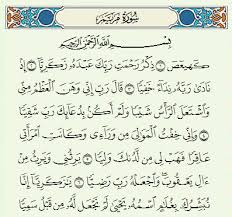 سُورَةُ مَرْيَمَ
بِسْمِ ٱللَّهِ ٱلرَّحْمَٰنِ ٱلرَّحِيمِ
كٓهيعٓصٓ ١ ذِكْرُ رَحْمَتِ رَبِّكَ عَبْدَهُۥ زَكَرِيَّآ ٢ إِذْ
نَادَىٰ رَبَّهُۥ نِدَآءً خَفِيًّا ٣ قَالَ رَبِّ إِنِّى وَهَنَ ٱلْعَظْمُ مِنِّى
وَٱشْتَعَلَ ٱلرَّأْسُ شَيْبًا وَلَمْ أَكُنۢ بِدُعَآئِكَ رَبِّ شَقِيًّا ٤
وَإِنِّى خِفْتُ ٱلْمَوَٰلِىَ مِن وَرَآءِى وَكَانَتِ ٱمْرَأَتِى
عَاقِرًا فَهَبْ لِى مِن لَّدُنكَ وَلِيًّا ٥ يَرِثُنِى وَيَرِثُ مِنْ
ءَالِ يَعْقُوبَ وَٱجْعَلْهُ رَبِّ رَضِيًّا ٦ يَٰزَكَرِيَّآ إِنَّا
نُبَشِّرُكَ بِغُلَٰمٍ ٱسْمُهُۥ يَحْيَىٰ لَمْ نَجْعَل لَّهُۥ مِن قَبْلُ